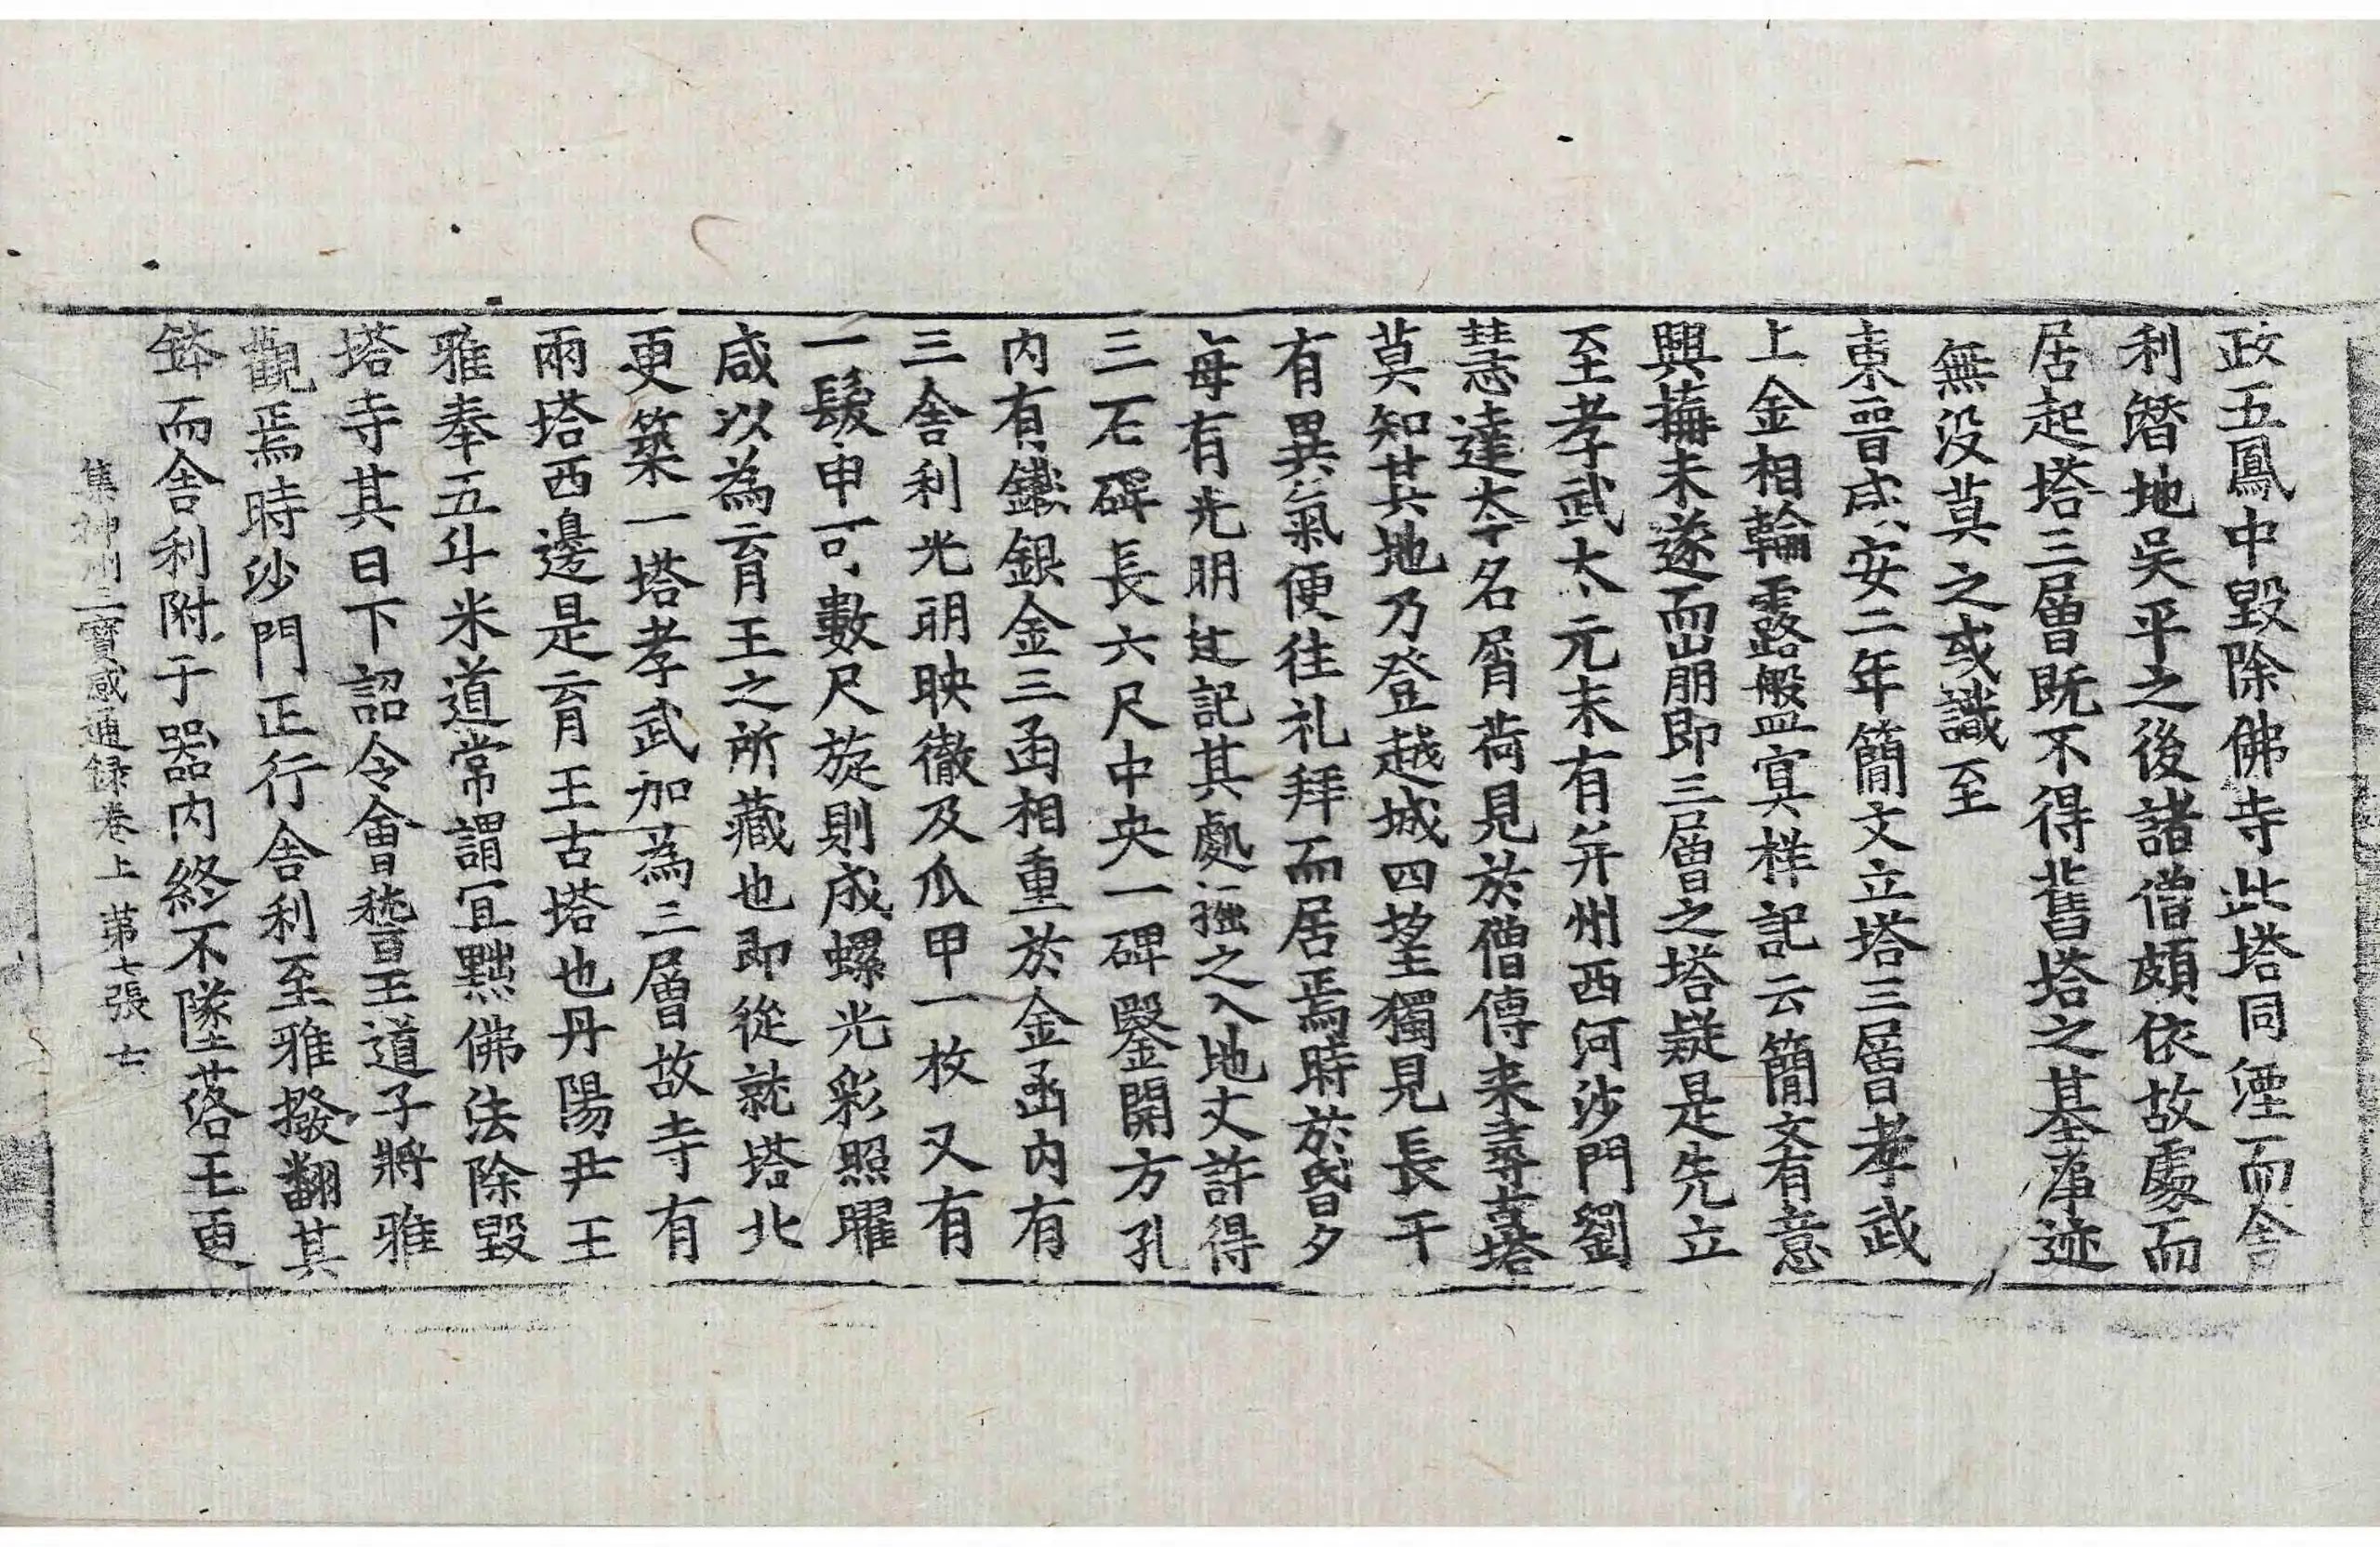 政五鳳中毀除佛寺此塔同湮而舍
利潛地吳平之後諸僧頗依故處而
居起塔三層既不得舊塔之基庿迹
無没莫之或識至
東晉咸安二年簡文立塔三層孝武
上金相輪露盤寘样記云簡文有意
興搆未遂而崩即三層之塔疑是先立
至孝武太元末有并州西河沙門劉
慧達本名屑荷見於僧傳来尋古塔
莫知其地乃登越城四望獨見長干
有異氣便往礼拜而居焉時於昏夕
每有光明迬記其處掘之入地丈許得
三石碑長六尺中央一碑鑿開方孔
内有鐵銀金三函相重於金函内有
三舍利光明映徹及爪甲一枚又有
一髮申可數尺旋則成螺光彩照曜
咸以為育王之所藏也即從就塔北
更築一塔孝武加為三層故寺有
兩塔西邊是育王古塔也丹陽尹王
雅奉五斗米道常謂冝黜佛法除毀
塔寺其日下詔令會稽王道子將雅
觀焉時沙門正行舍利至雅撥翻其
鉢而舍利附于器内終不墜落王更
集神州三寶感通録卷上 苐七張 士